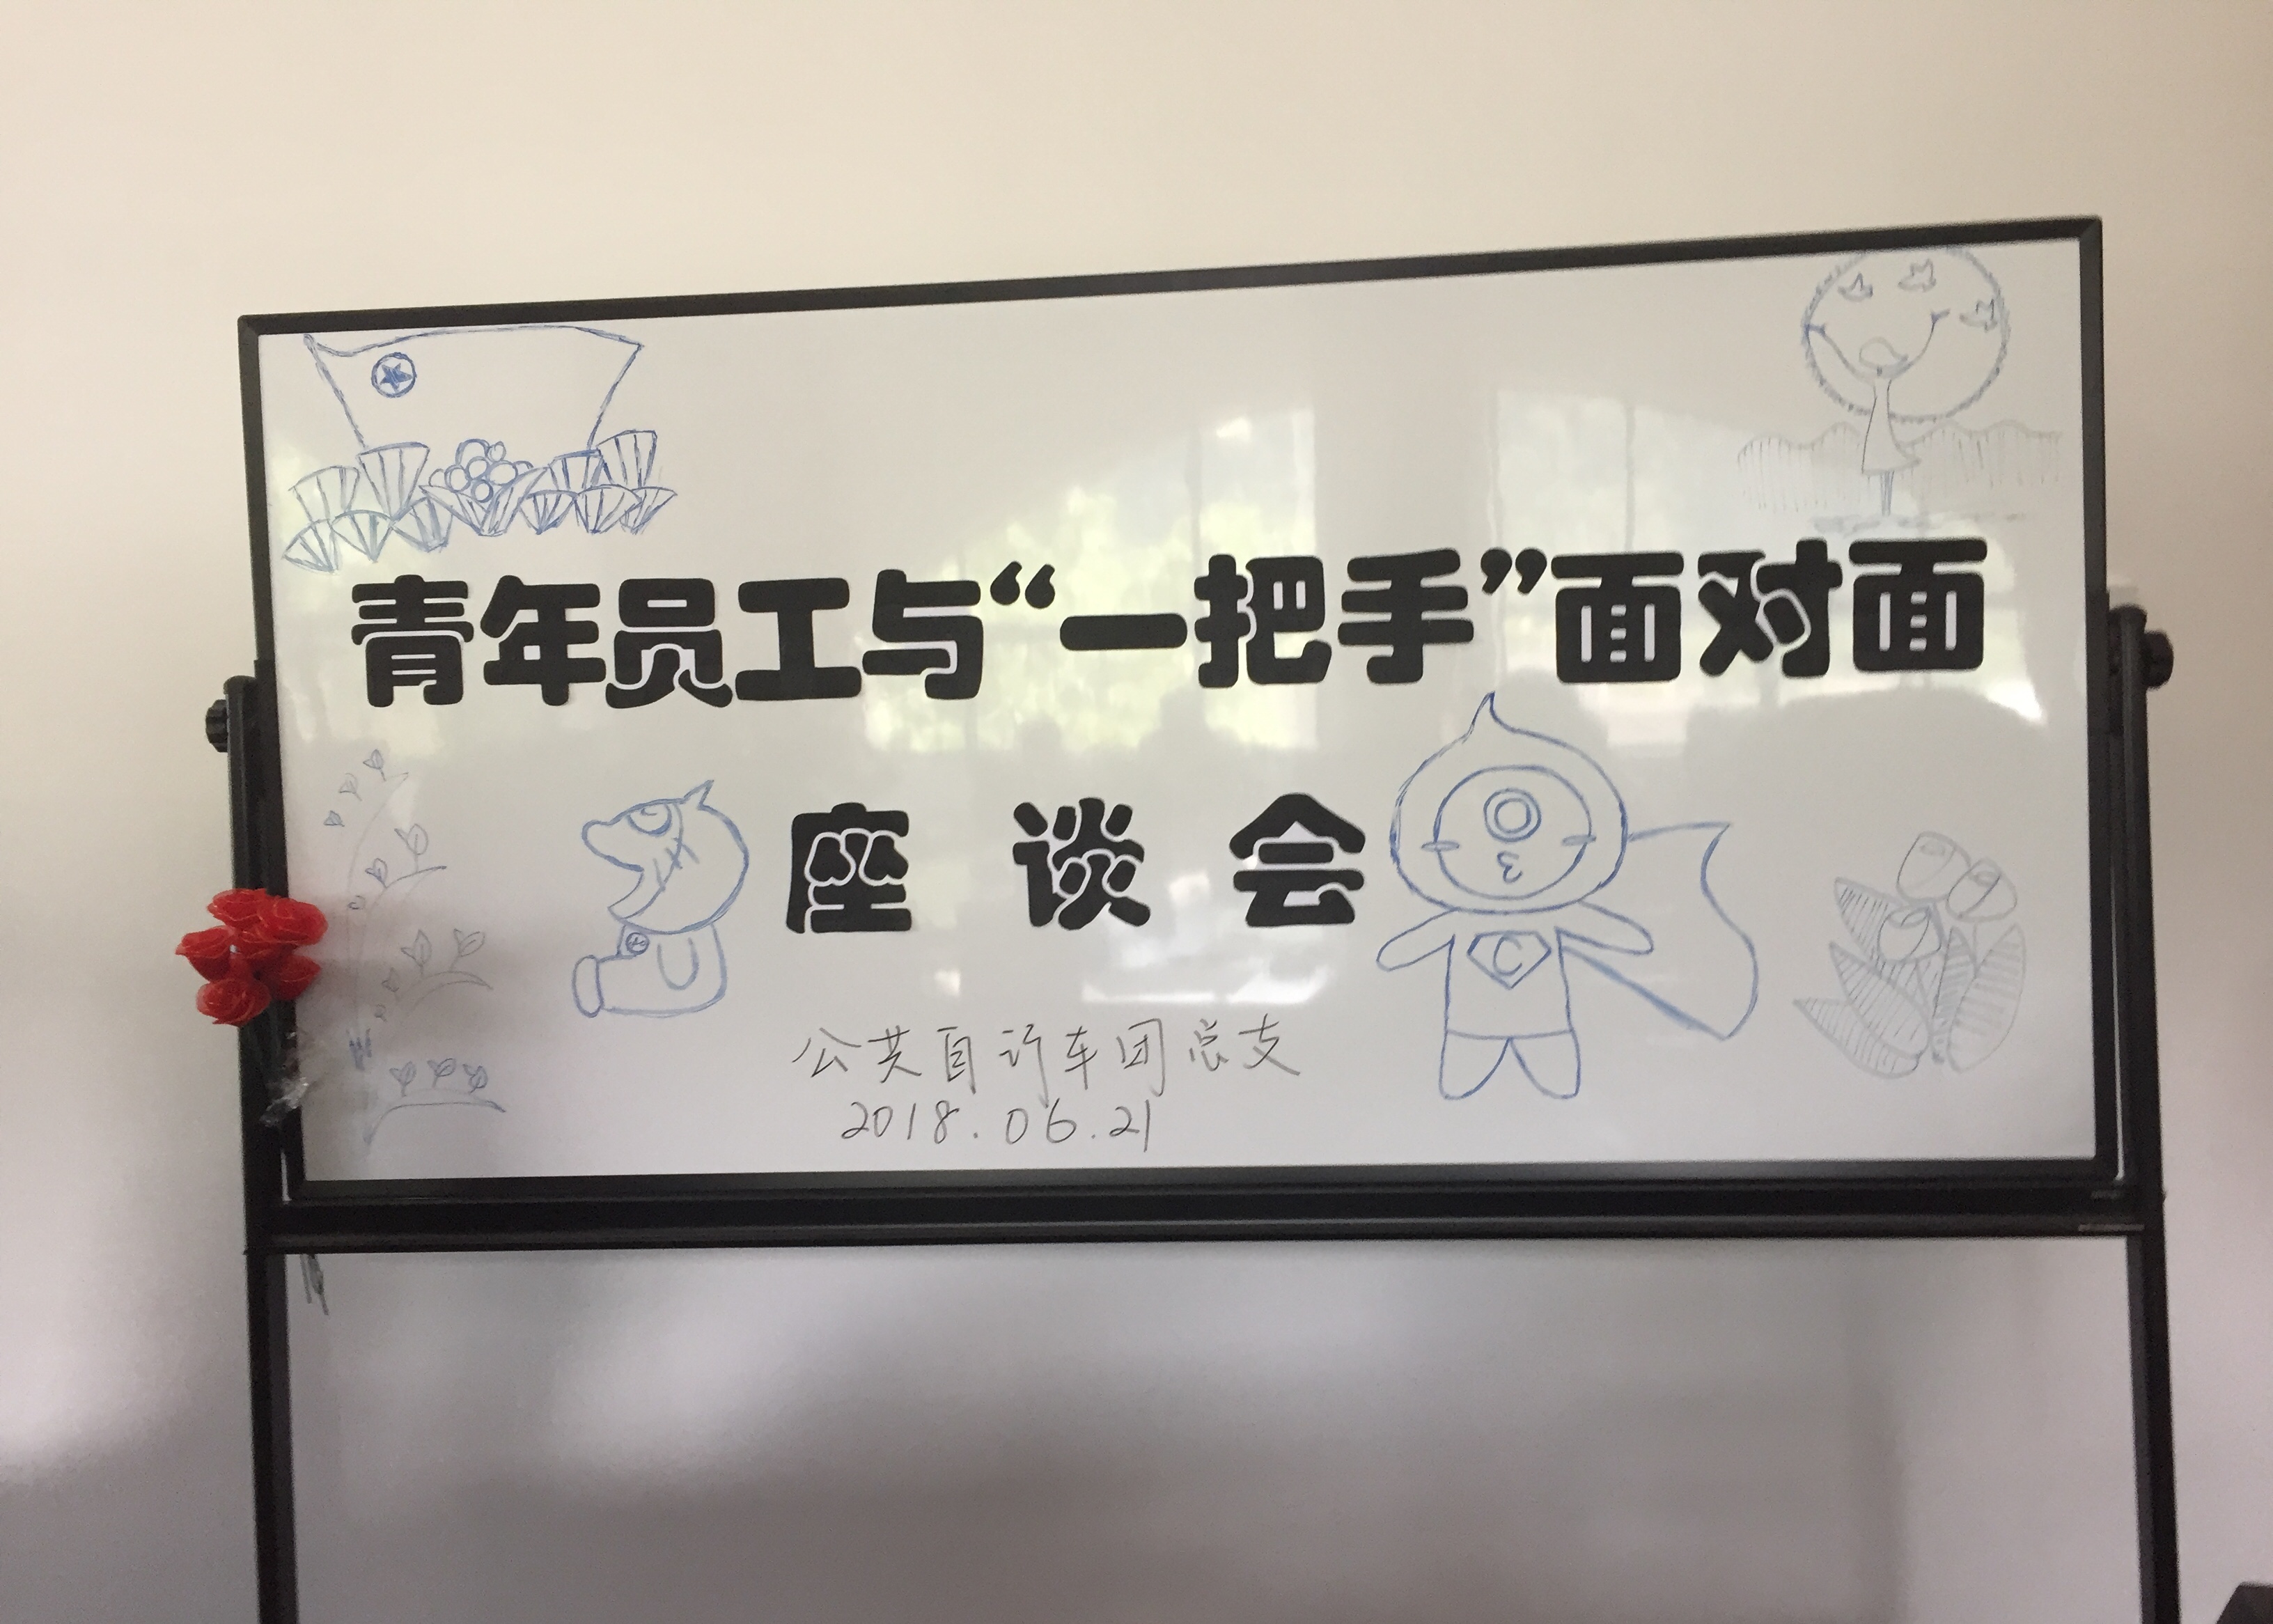 青年员工与“一把手”面对面
座谈会
C
公共自行车团总支
2018.06.21